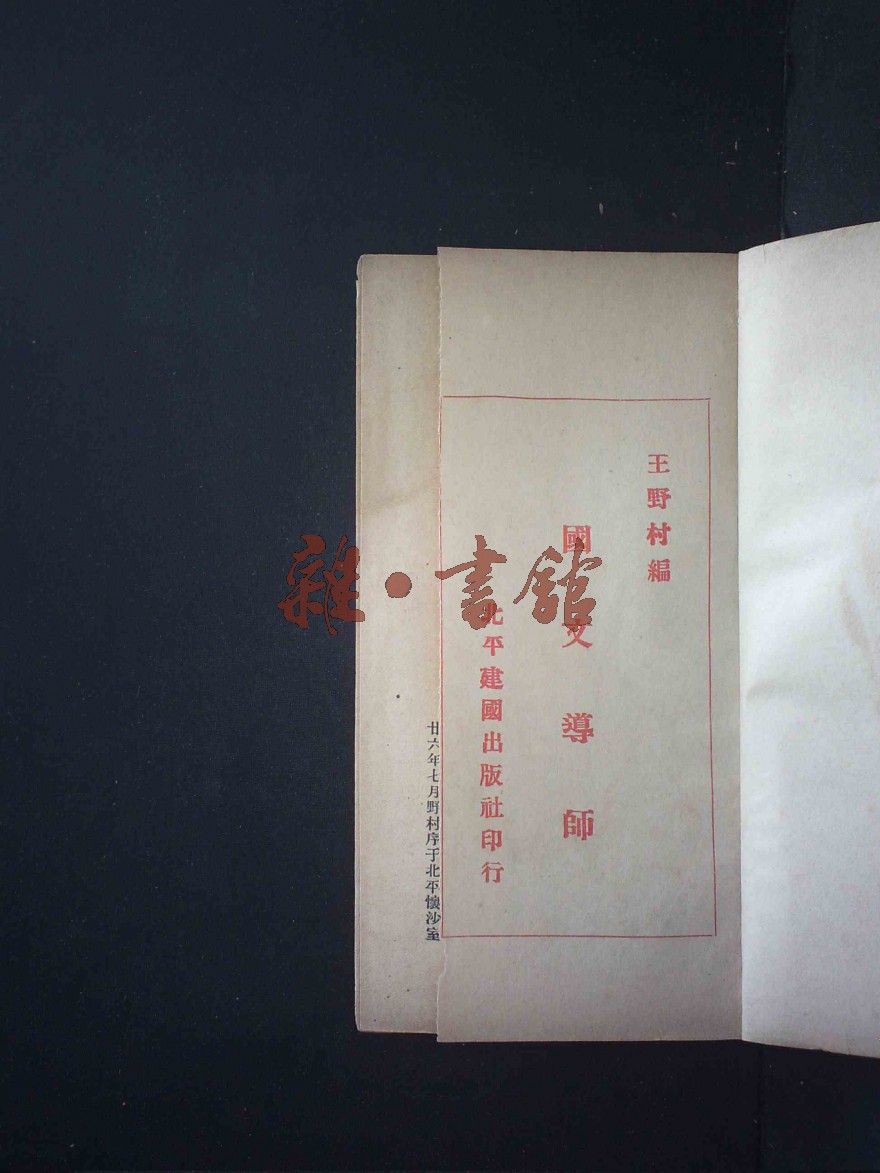 王野村編
國文導師
北平建國出版社印行
廿六年七月野村序于北平懷沙室
雜·書館